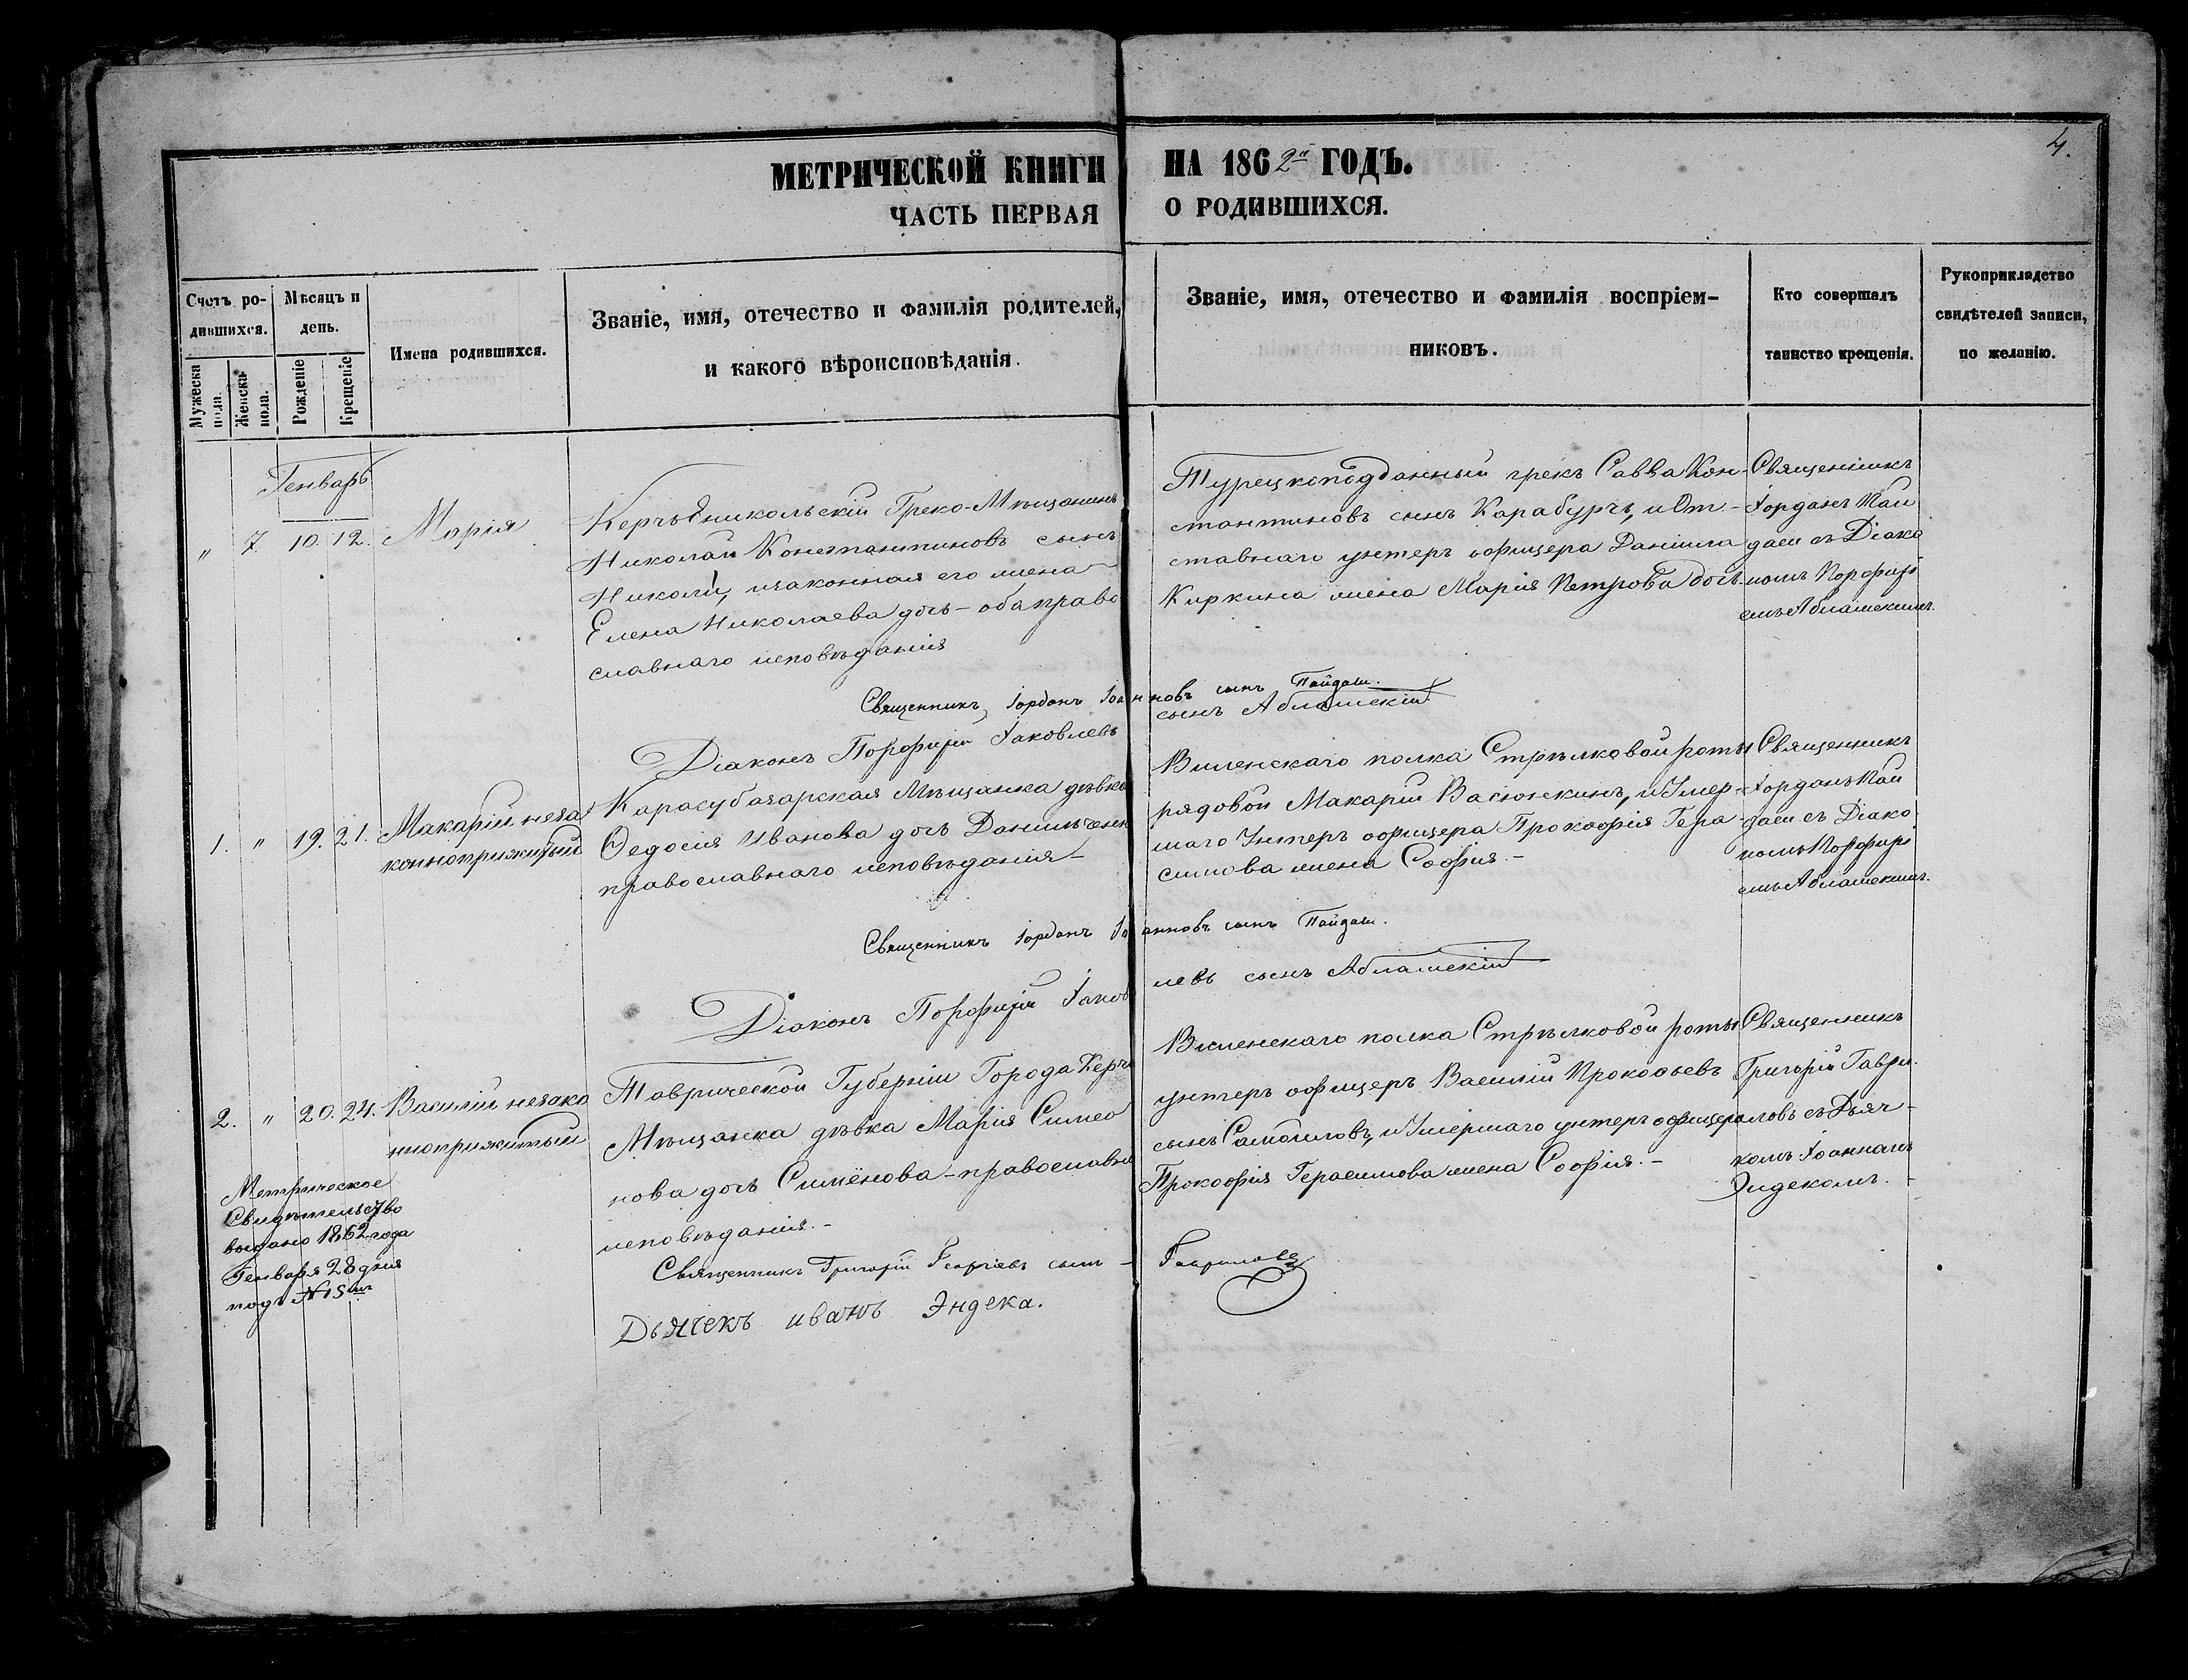 4.
МЕТРИЧЕСКОЙ КНИГИ НА 1862й ГОДЪ.
ЧАСТЬ ПЕРВАЯ О РОДИВШИХСЯ.
Счетъ ро-
дившихся.
Мужеска
пола.
Женска
пола.
Мѣсяцъ и
день.
Рожденіе
Крещеніе
Имена родившихся.
Званіе, имя, отечество и фамилія родителей,
и какого вѣроисповѣданія.
Званіе, имя, отечество и фамилія воспріем-
никовъ.
Кто совершалъ
таинство крещенія.
Рукоприкладство
свидѣтелей записи,
по желанію.
Генварь
" 7 10. 12. Марія
Керчьеникольскій Греко-Мѣщанинъ
Николай Константиновъ сынъ
Николи, изаконная его жена
Елена Николаева дочь - оба право
славнаго исповѣданія
Турецкоподданный грекъ Савва Кон-
стантиновъ сынъ Карабурчъ, и От-
ставнаго унтеръ офицера Даніила
Киркина жена Марія Петрова дочь
Священникъ
Іорданъ Пай
даси съ Діако
номъ Порфирі
емъ Аблашекимъ.
Священникъ Іорданъ Іоанновъ сынъ Пайдаси.
Діаконъ Порфирій Іаковлевъ сынъ Аблашекій
1. " 19. 21. Макарій незак
конноприжитый
Карасубазарская Мѣщанка дѣвка
Ѳедосія Иванова дочь Данильченк
православнаго исповѣданія -
Виленскаго полка Стрѣлковой роты
рядовой Макарій Васюнкинъ, и Умер-
шаго Унтеръ офицера Прокофія Гера-
симова жена Софія. -
Священникъ
Іорданъ Пай
даси съ Діако-
номъ Порфирі
емъ Аблашекимъ.
Священникъ Іорданъ Іоанновъ сынъ Пайдаси.
Діаконъ Порфирій Іаковлевъ сынъ Аблашекій
2. " 20. 24. Василій незако
ннoприжитый
Таврической Губерніи Города Керчи
Мѣщанка дѣвка Марія Симео
нова дочь Симёнова - православна
исповѣданія. -
Виленскаго полка Стрѣлковой роты
унтеръ офицеръ Василій Прокофьевъ
сынъ Самойловъ, и Умершаго унтеръ офицера
Прокофія Герасимова жена Софія. -
Священникъ
Григорій Гаври-
ловъ съ Дьяч-
комъ Іоанномъ
Эндекомъ. -
Метрическое
Свидѣтельство
выдано 1862 года
Генваря 28 дня
подъ № 15мъ
Священникъ Григорій Георгіевъ сынъ - Гавриловъ
Дьячекъ иванъ Эндека.